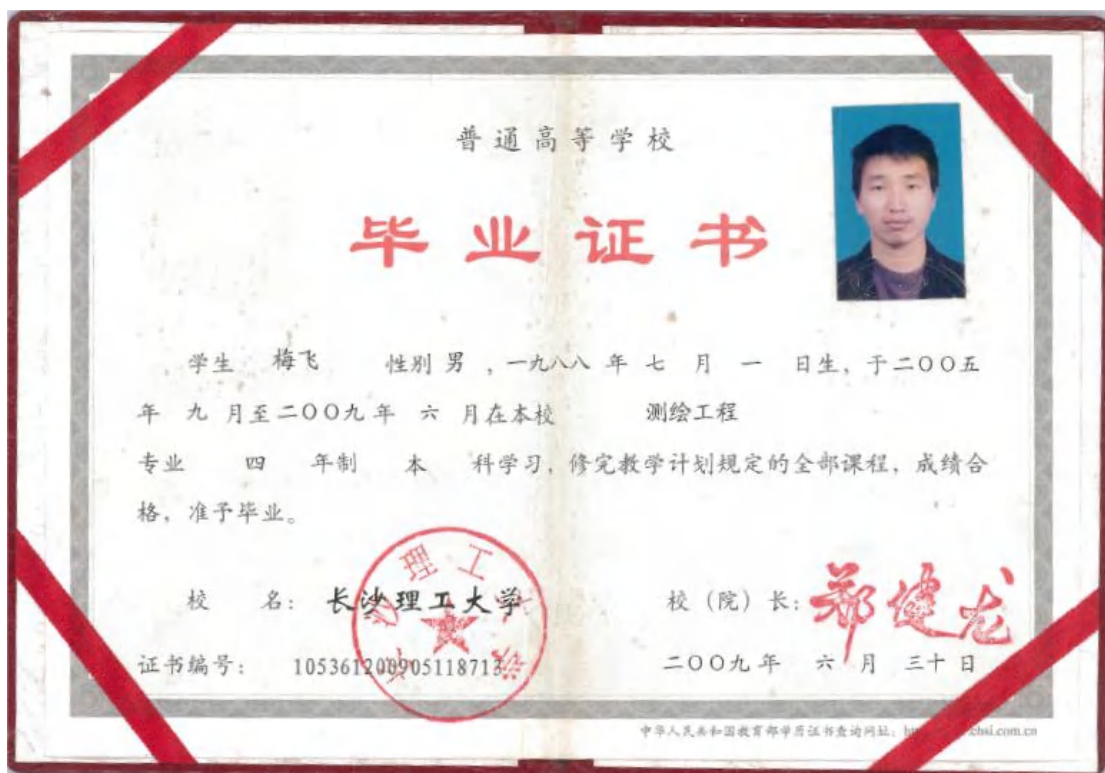 普通高等学校
毕业证书
学生 梅飞 性别 男 ,一九八八 年 七 月 一 日生, 于二〇〇五
年 九 月至二〇〇九年 六 月在本校 测绘工程
专业 四 年制 本 科学习, 修完教学计划规定的全部课程, 成绩合
格, 准予毕业。
校 名: 长沙理工大学 校（院）长: 郑健龙
证书编号: 105361200905118713 二〇〇九年 六 月 三十日
中华人民共和国教育部学历证书查询网址: chsi.com.cn